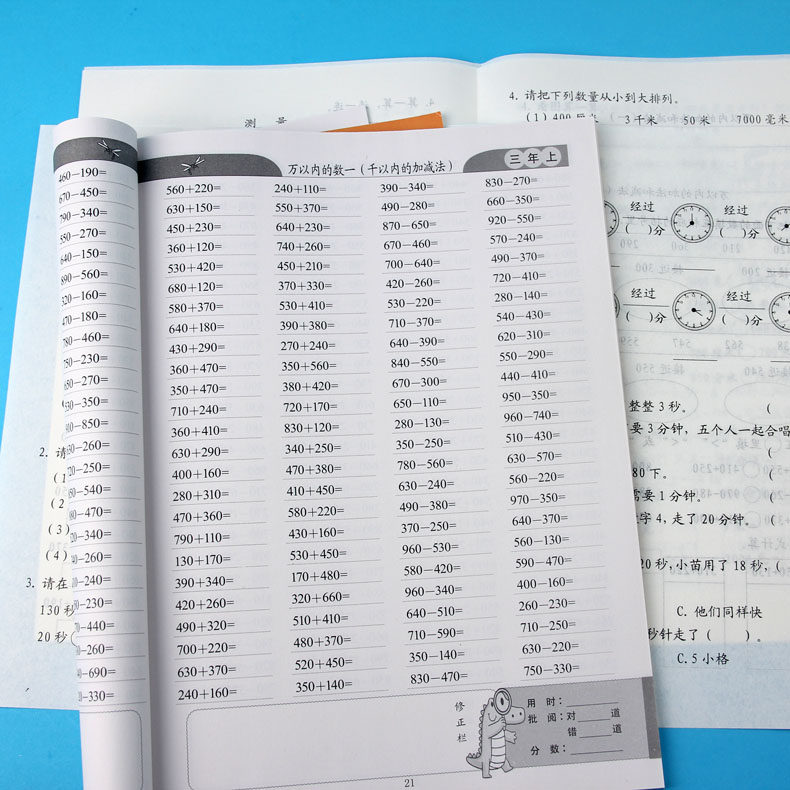 测 量
4. 请把下列数量从小到大排列。
(1) 400 厘米 3 千米 50 米 7000 毫米
经过 经过
( )分 ( )分
经过 经过
( )分 ( )分
整整 3 秒。 (
要 3 分钟，五个人一起合唱
80 下。
需要 1 分钟。
字 4，走了 20 分钟。 (
20 秒，小苗用了 18 秒，(
C. 他们同样快
秒针走了 ( )。
C. 5 小格
2. 请
(1
(2
(3)
(4)
3. 请在
130 秒
20 秒
460−190=
670−450=
290−340=
550−270=
640−150=
890−560=
320−160=
470−180=
780−460=
750−230=
650−270=
−350=
−850=
−260=
−250=
−540=
−470=
−340=
−260=
−240=
−230=
−440=
−260=
−690=
−330=
万以内的数一（千以内的加减法） 三年上
560+220= 240+110= 390−340= 830−270=
630+150= 550+370= 490−280= 660−350=
450+230= 640+230= 870−650= 920−550=
360+120= 740+260= 670−460= 570−240=
530+420= 450+210= 700−640= 490−370=
680+120= 370+330= 420−260= 720−410=
580+370= 530+410= 530−220= 280−140=
640+180= 390+380= 710−370= 540−430=
430+290= 270+240= 640−390= 620−310=
360+470= 350+560= 840−550= 550−290=
350+470= 380+420= 670−300= 440−410=
710+240= 720+170= 650−110= 950−350=
360+410= 830+120= 280−130= 960−740=
630+290= 340+250= 350−250= 510−430=
400+160= 470+380= 780−560= 630−570=
280+310= 410+450= 630−240= 560−220=
470+360= 580+220= 490−380= 970−350=
790+110= 430+160= 370−250= 640−370=
130+170= 530+450= 960−530= 560−130=
390+340= 170+480= 580−420= 590−470=
420+260= 320+660= 960−340= 400−160=
490+320= 510+410= 640−510= 260−230=
700+220= 480+370= 710−590= 710−250=
630+370= 520+450= 350−140= 630−220=
240+160= 350+140= 830−470= 750−330=
修正栏
用 时：
批 阅：对 道
错 道
分 数：
21